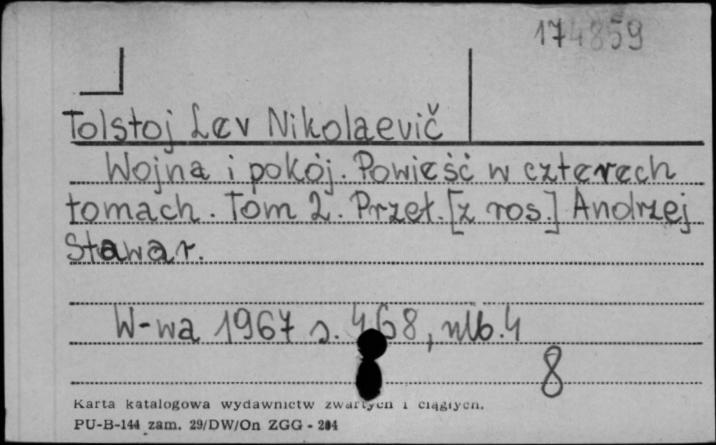 174859
Tolstoj Lev Nikolaevič
Wojna i pokój. Powieść w czterech
tomach. Tom 2. Przeł. [z ros.] Andrzej
Stawar.
W-wa 1967 s. 468, nlb. 4
8
Karta katalogowa wydawnictw zwartych i ciągłych.
PU-B-144 zam. 29/DW/On ZGG - 204